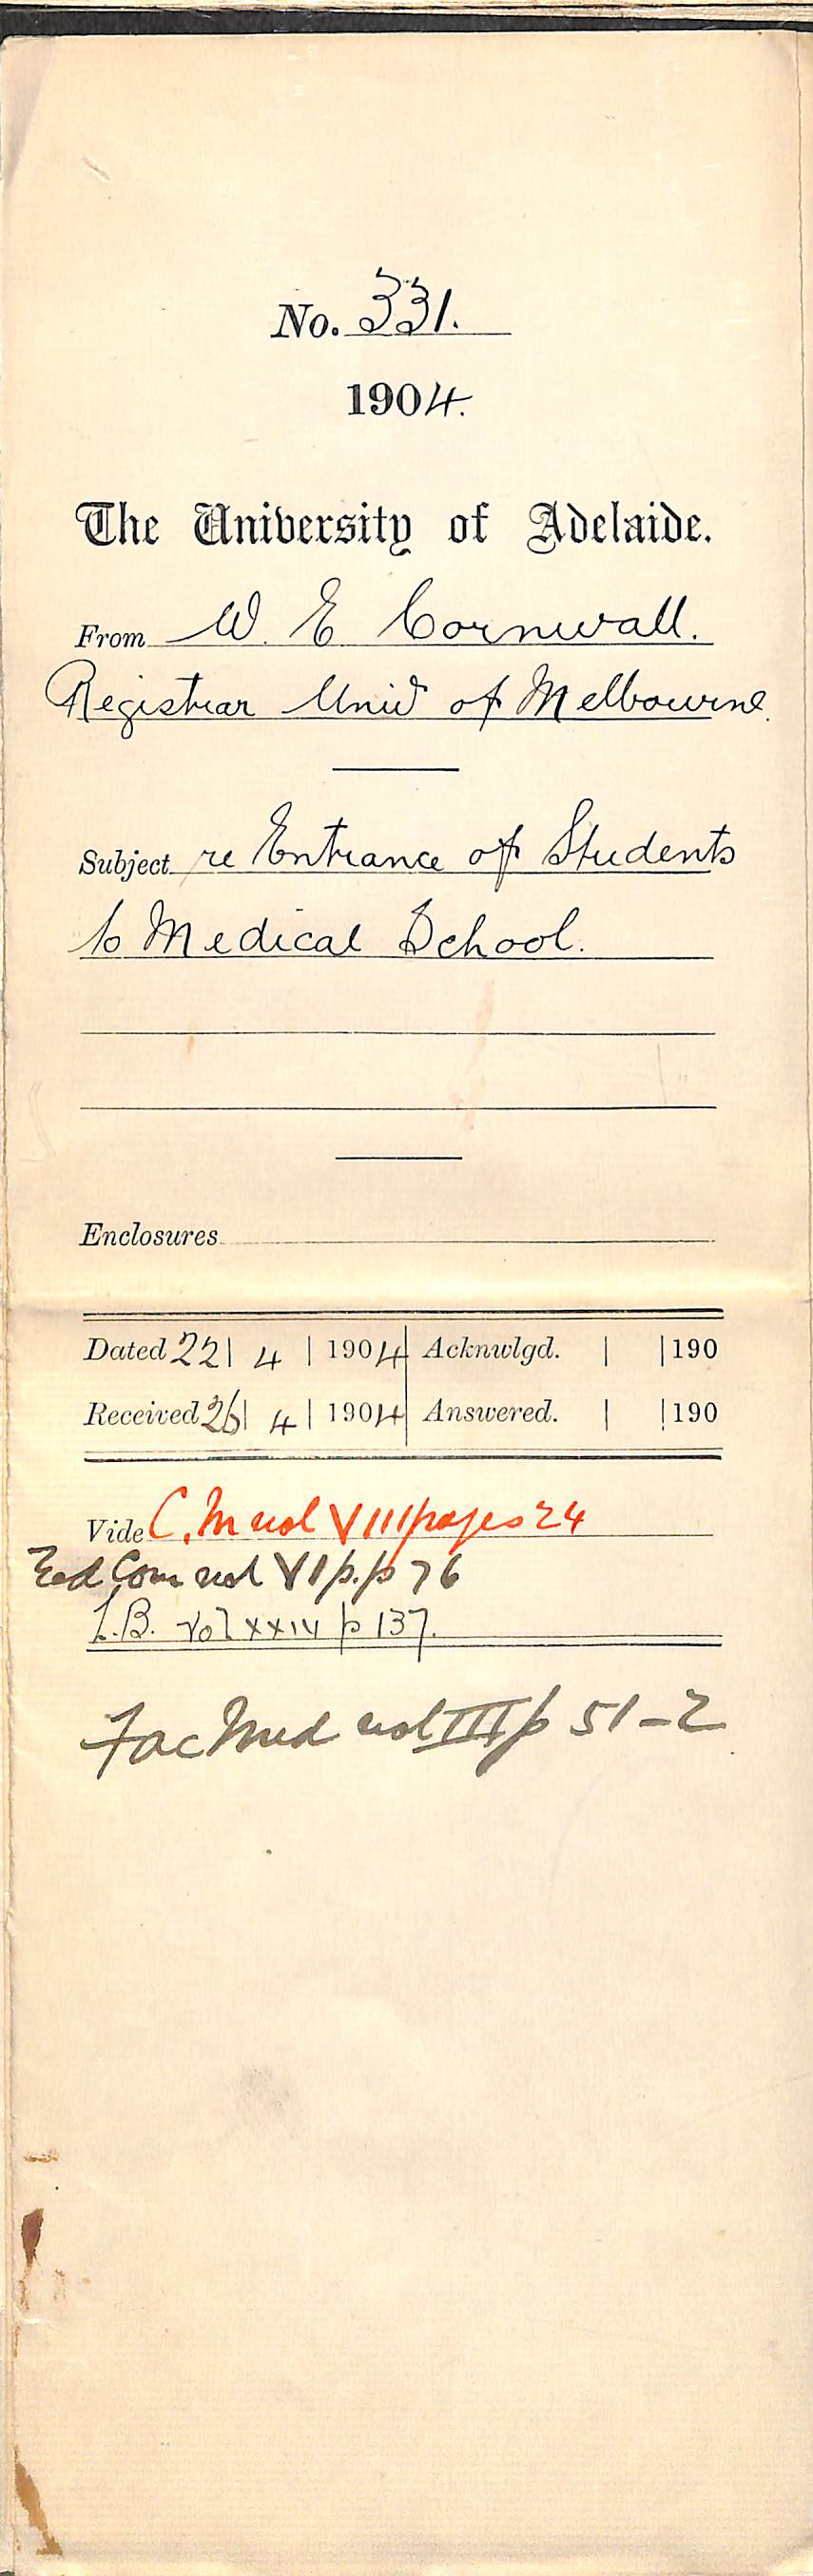 No. 331.
1904.
The University of Adelaide.
From W. E Cornwall.
Registrar Univ of Melbourne.
Subject re Entrance of Students
to Medical School.
Enclosures
Dated 22| 4 | 1904 Acknwlgd. | |190
Received 26| 4 | 1904 Answered. | |190
Vide C. M vol VIII pages 24
Ed Com vol VI p.p 76
L.B. Vol XXIV p 137.
Fac Med vol III p 51-2